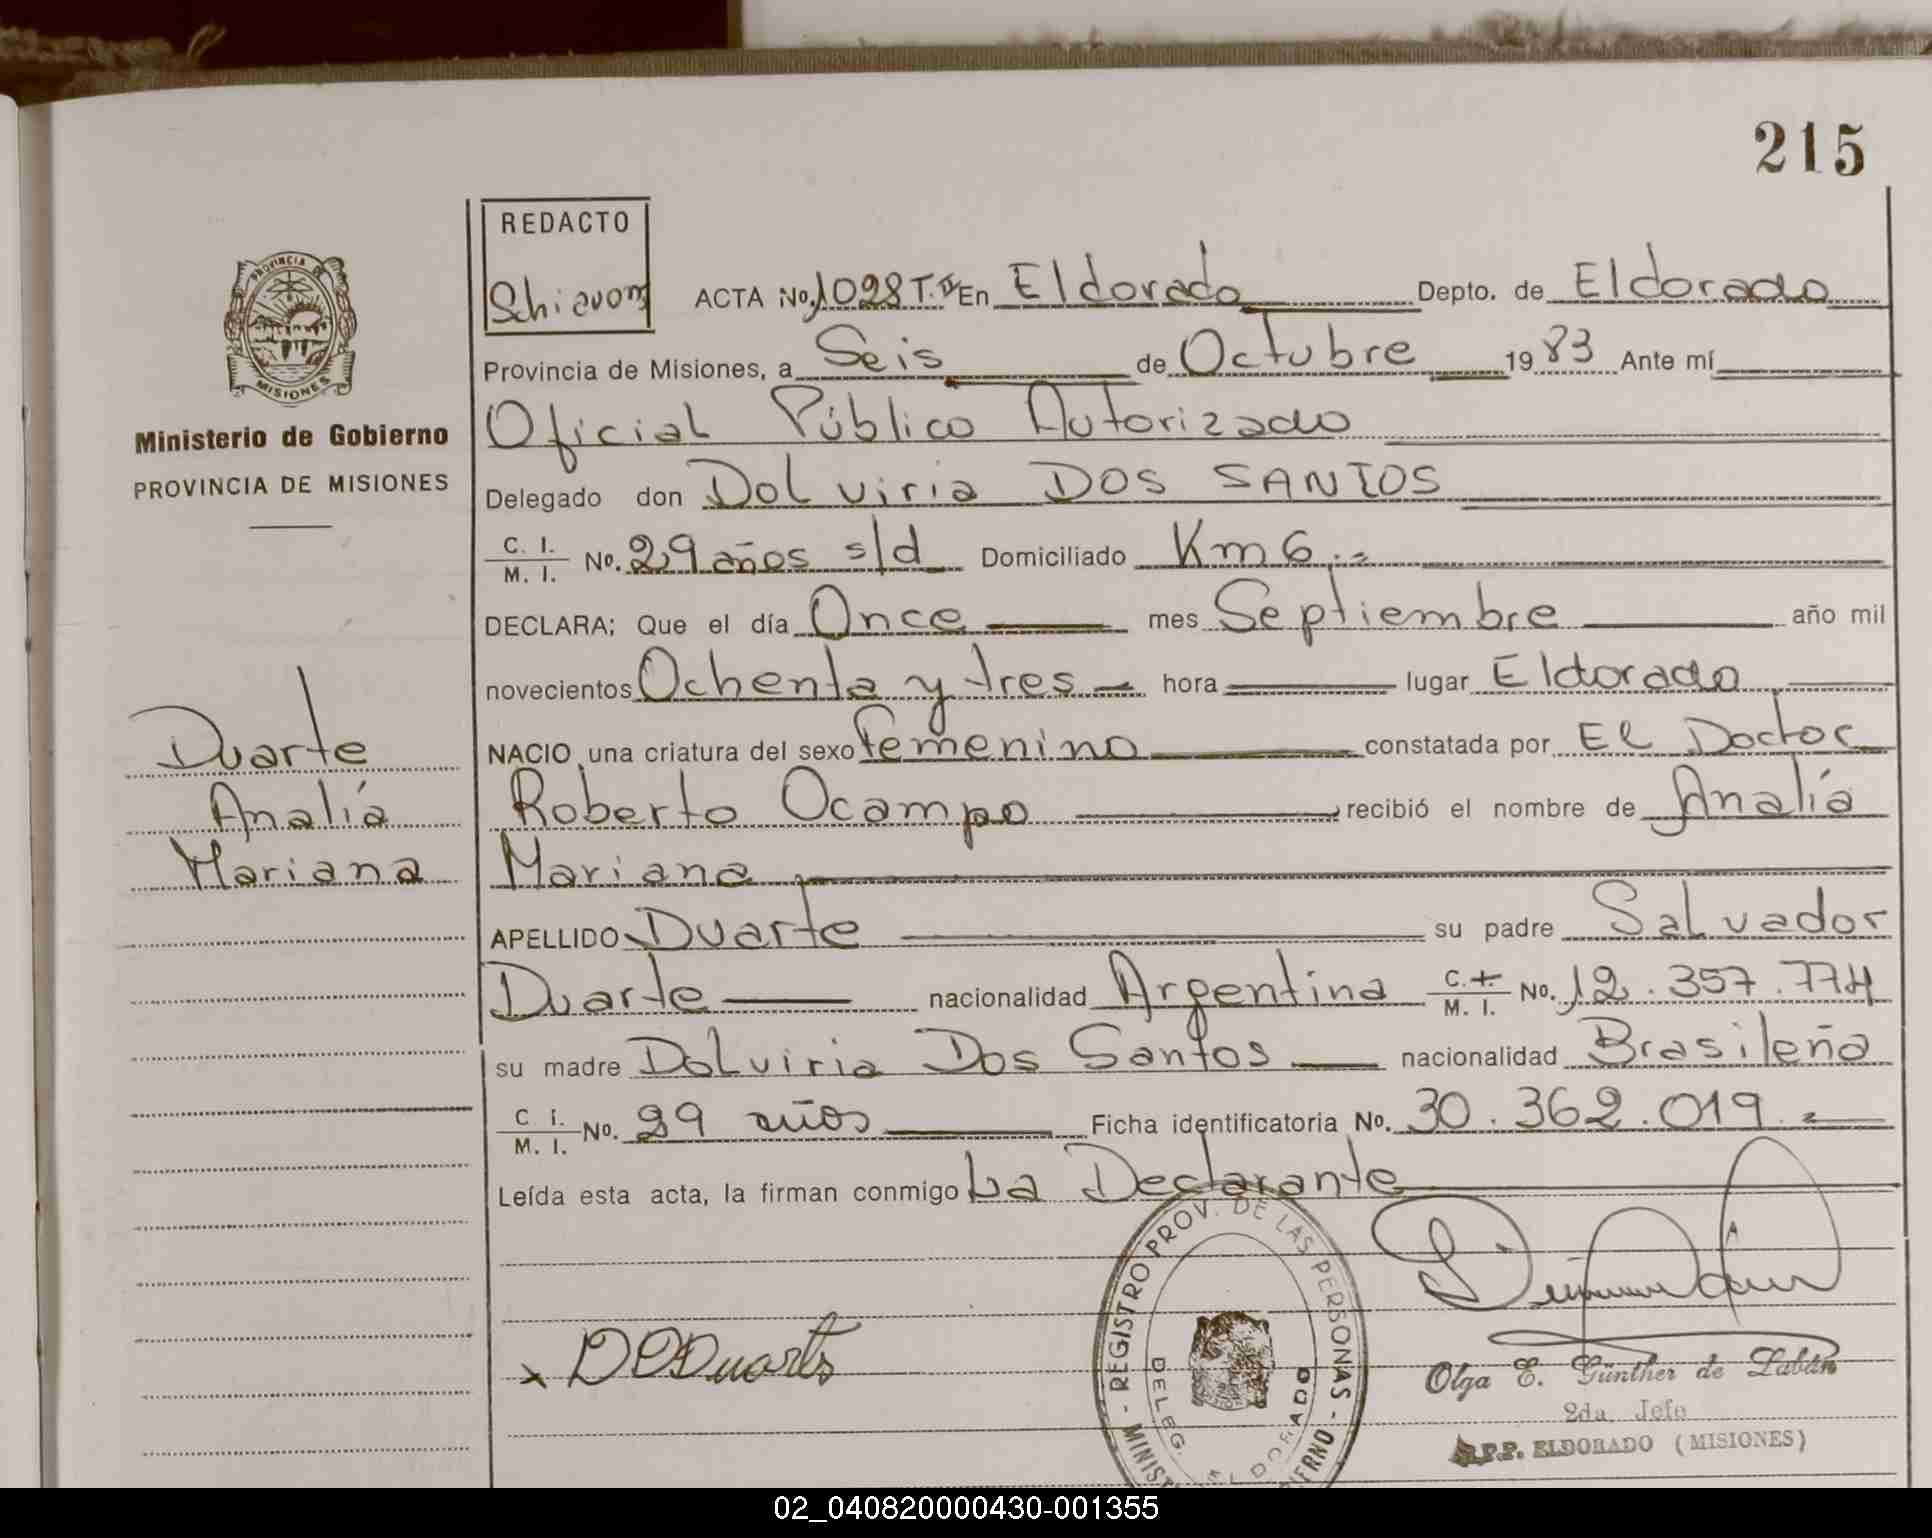 215
REDACTO
Schiavoni
ACTA No. 1028 T. En Eldorado Depto. de Eldorado
Provincia de Misiones, a Seis de Octubre 1983 Ante mí
Oficial Público Autorizado
Delegado don Dolviria DOS SANTOS
C. I. / M. I. No. 29 años s/d Domiciliado Km 6.=
DECLARA; Que el día Once mes Septiembre año mil
novecientos Ochenta y tres hora lugar Eldorado
NACIO una criatura del sexo femenino constatada por El Doctor
Roberto Ocampo recibió el nombre de Analía
Mariana
APELLIDO Duarte su padre Salvador
Duarte nacionalidad Argentina C. I. / M. I. No. 12.357.774
su madre Dolviria Dos Santos nacionalidad Brasileña
C I. / M. I. No. 29 años Ficha identificatoria No. 30.362.019.=
Leída esta acta, la firman conmigo La Declarante
PROVINCIA DE
MISIONES
Ministerio de Gobierno
PROVINCIA DE MISIONES
Duarte
Analía
Mariana
x D D Duarte
REGISTRO PROV. DE LAS PERSONAS - MINIST
DELEG. ELDORADO
Olga E. Günther de Labán
2da. Jefe
R.P.P. ELDORADO (MISIONES)
02_040820000430-001355